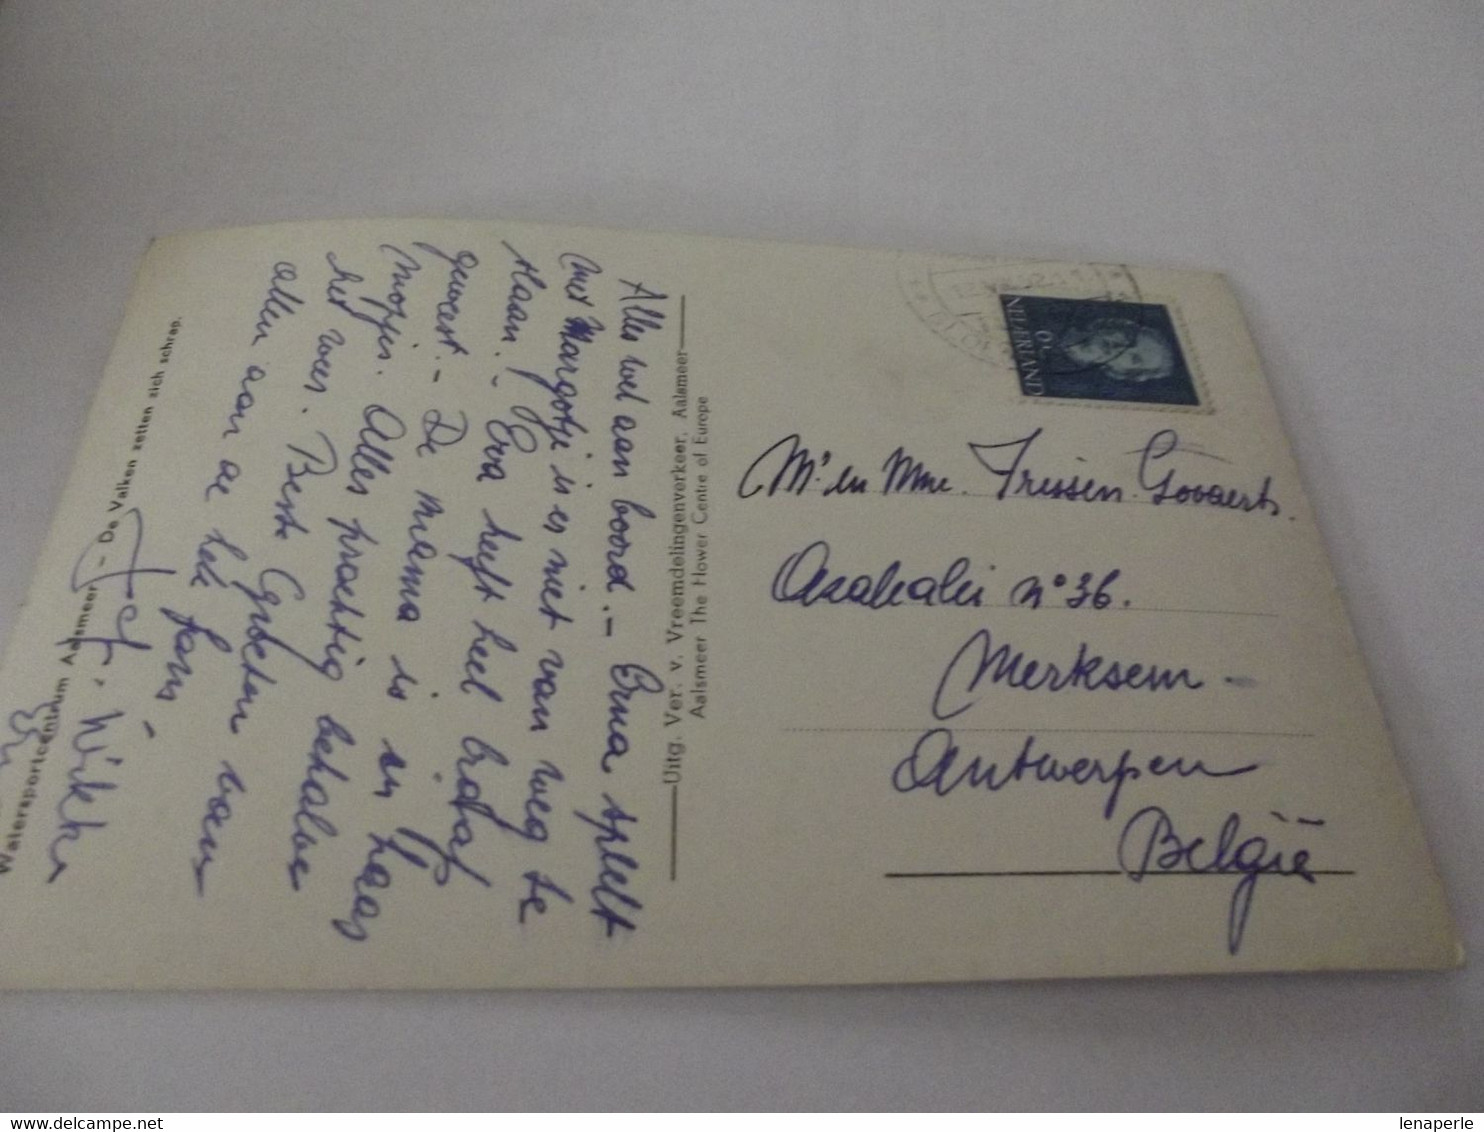 Alles wel aan boord. - Erna speelt
met Margotje is er niet van weg te
slaan! - Eva heeft heel braaf
geweest. - De mama is in haar
nopjes. Alles prachtig behalve
het weer. Beste Groeten van
allen aan de hele fam -
Jef, Wikke
Watersportcentrum Aalsmeer - De Valken zetten zich schrap.
Uitg. Ver. v. Vreemdelingenverkeer, Aalsmeer
Aalsmeer The Flower Centre of Europe
NEDERLAND
20
Mr en Mme. Frissen-Govaerts.
n° 36.
Merksem -
Antwerpen
België
lenaperle